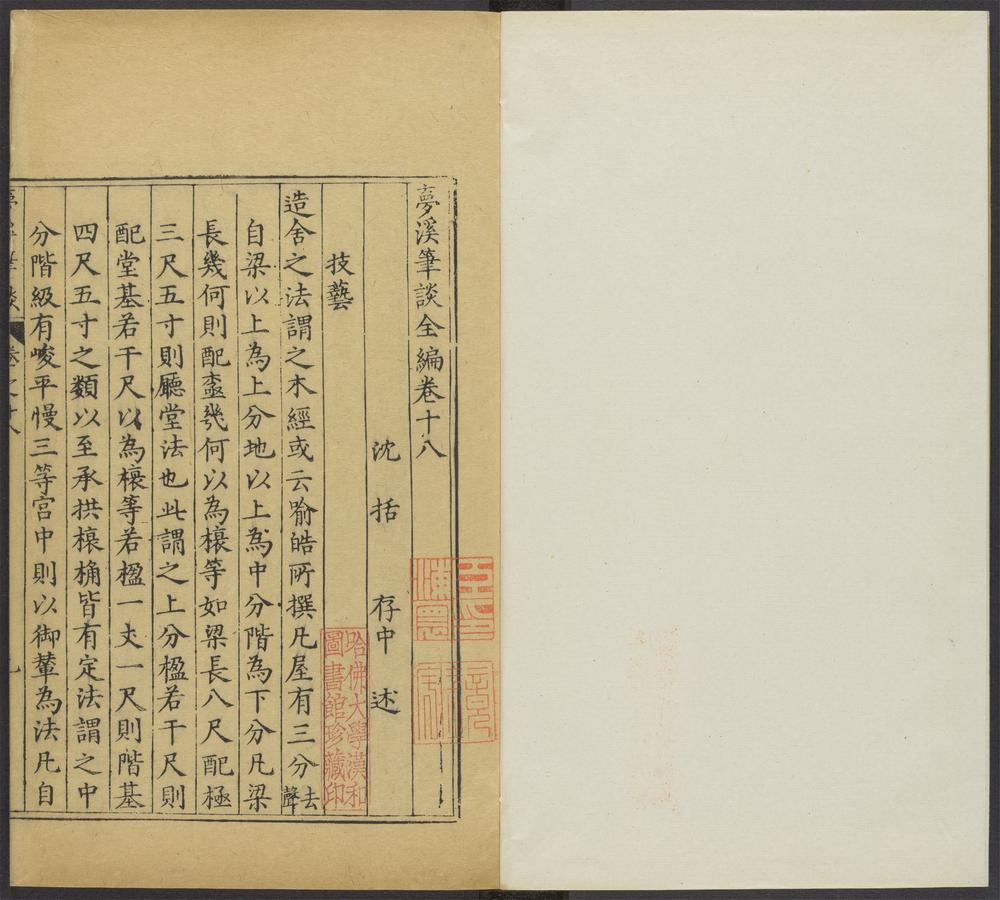 夢溪筆談全編卷十八
沈括存中述
技藝
造舍之法謂之木經或云喻皓所撰凡屋有三分去聲
自梁以上為上分地以上為中分階為下分凡梁
長幾何則配極幾何以為榱等如梁長八尺配極
三尺五寸則廳堂法也此謂之上分楹若干尺則
配堂基若干尺以為榱等若楹一丈一尺則階基
四尺五寸之類以至承拱榱桷皆有定法謂之中
分階級有峻平慢三等宮中則以御輦為法凡自
卷之十八
哈佛大學漢和
圖書館珍藏印